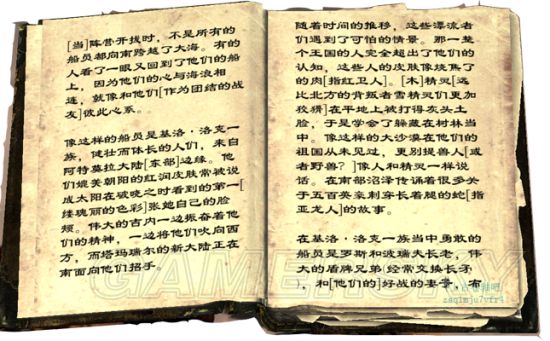 [当]阵营开拔时，不是所有的
船员都向南跨越了大海。有的
人看了一眼又回到了他们的船
上，因为他们的心与海浪相
连，就像和他们[作为团结的战
友]彼此心系。
像这样的船员是基洛·洛克一
族，健壮而体长的人们，来自
阿特莫拉大陆[东部]边缘。他
们媲美朝阳的红润皮肤常被说
成太阳在破晓之时看到的第一[
缕瑰丽的色彩]张她自己的脸
颊。伟大的古内一边振奋着他
们的精神，一边将他们吹向西
方，而塔玛瑞尔的新大陆正在
南面向他们招手。
随着时间的推移，这些漂流者
们遇到了可怕的情景，那一整
个王国的人完全超出了他们的
认知，这些人的皮肤像烧焦了
的肉[指红卫人]。[木]精灵[远
比北方的背叛者雪精灵们更加
狡猾]在平地上被打得灰头土
脸，于是学会了躲藏在树林当
中。像这样的大沙漠在他们的
祖国从未见过，更别提兽人[或
者野兽？]像人和精灵一样说
话。在南部沼泽传诵着很多关
于五百英豪刺穿长着腿的蛇[指
亚龙人]的故事。
在基洛·洛克一族当中勇敢的
船员是罗斯和波瑞夫长老，伟
大的盾牌兄弟[经常交换长矛
，和[他们的]好战的妻妾，布
GAMERSKY